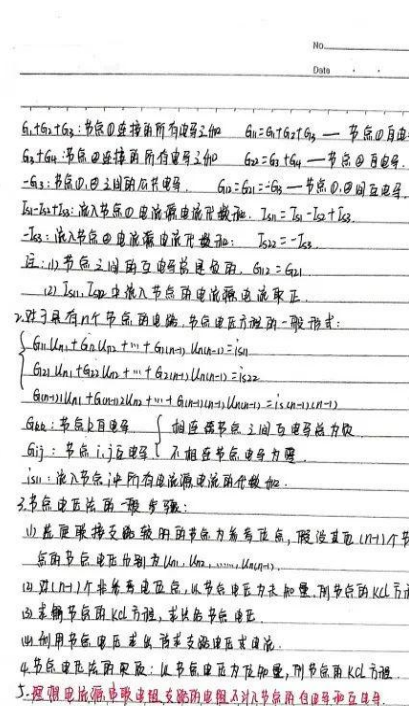 No.
Date
G₁+G₂+G₃:节点①连接的所有电导之和 G₁₁=G₁+G₂+G₃ — 节点①自电
G₃+G₄:节点②连接的所有电导之和 G₂₂=G₃+G₄ — 节点②自电导.
-G₃:节点①,②之间的公共电导. G₁₂=G₂₁=-G₃ — 节点①,②间互电导.
Is₁-Is₂+Is₃:流入节点①电流源电流代数和. Is₁₁=Is₁-Is₂+Is₃.
-Is₃:流入节点②电流源电流代数和: Is₂₂=-Is₃.
注:(1)节点之间的互电导总是负的, G₁₂=G₂₁
(2) Is₁₁, Is₂₂中流入节点的电流源电流取正.
2.对于具有n个节点的电路,节点电压方程的一般形式:
G₁₁Un₁+G₁₂Un₂+…+G₁(n-1)Un(n-1)=is₁₁
G₂₁Un₁+G₂₂Un₂+…+G₂(n-1)Un(n-1)=is₂₂
G(n-1)₁Un₁+G(n-1)₂Un₂+…+G(n-1)(n-1)Un(n-1)=is(n-1)(n-1)
Gkk:节点k自电导 相连接节点之间互电导总为负
Gij:节点i,j互电导 不相连节点电导为零
is₁₁:流入节点i中所有电流源电流的代数和.
3.节点电压法的一般步骤:
(1)选联接支路较多的节点为参考点,假设其他(n-1)个节
点的节点电压分别为Un₁,Un₂,……,Un(n-1).
(2)对(n-1)个非参考电位点,以节点电压为未知量,列节点的KCL方
(3)求解节点的KCL方程,求出各节点电压
(4)利用节点电压求出待求支路电压或电流.
4.节点电压法的实质:以节点电压为未知量,列节点的KCL方程.
5.理想电流源串联电阻,支路的电阻不计入节点的自电导和互电导.